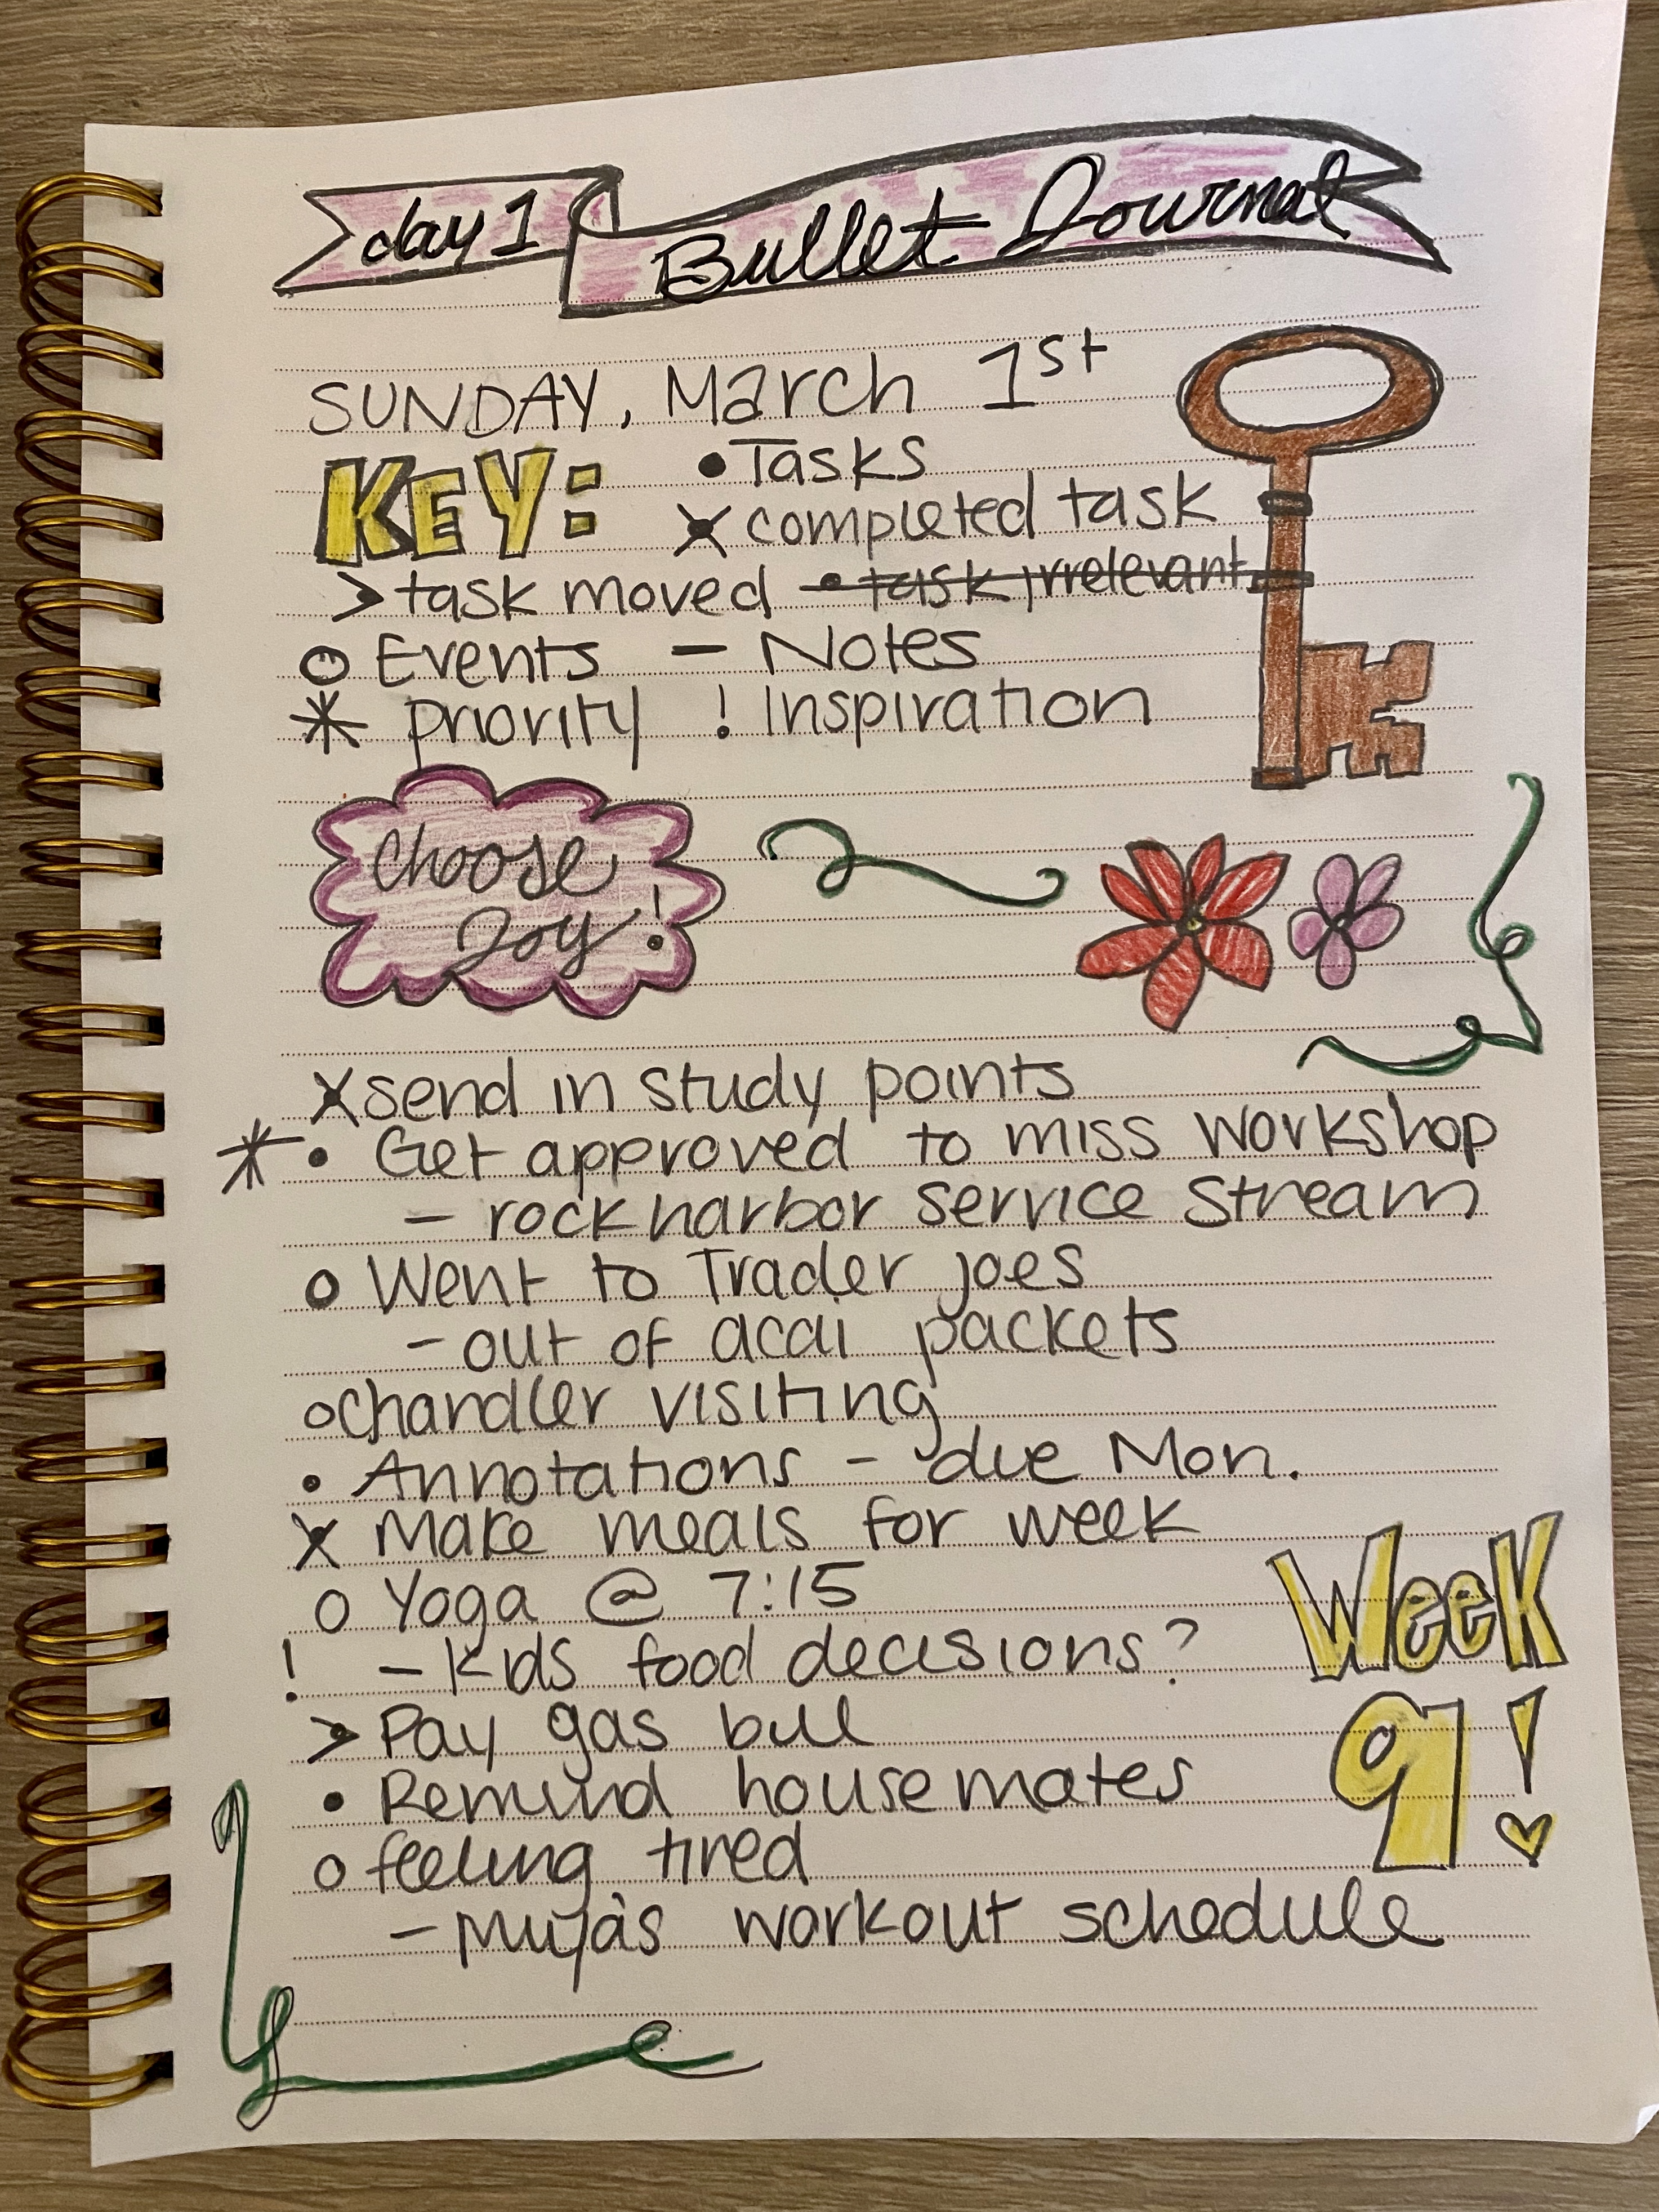 day 1 Bullet Journal
SUNDAY, March 1st
KEY: • Tasks
x completed task
> task moved • task irrelevant
o Events — Notes
* priority ! Inspiration
Choose
Joy!
x send in study points
* • Get approved to miss workshop
— rockharbor service stream
o Went to Trader joes
- out of acai packets
o Chandler visiting
• Annotations - due Mon.
x Make meals for week
o Yoga @ 7:15
! — Kids food decisions?
> Pay gas bill
• Remind housemates
o feeling tired
— workout schedule
Week
9!